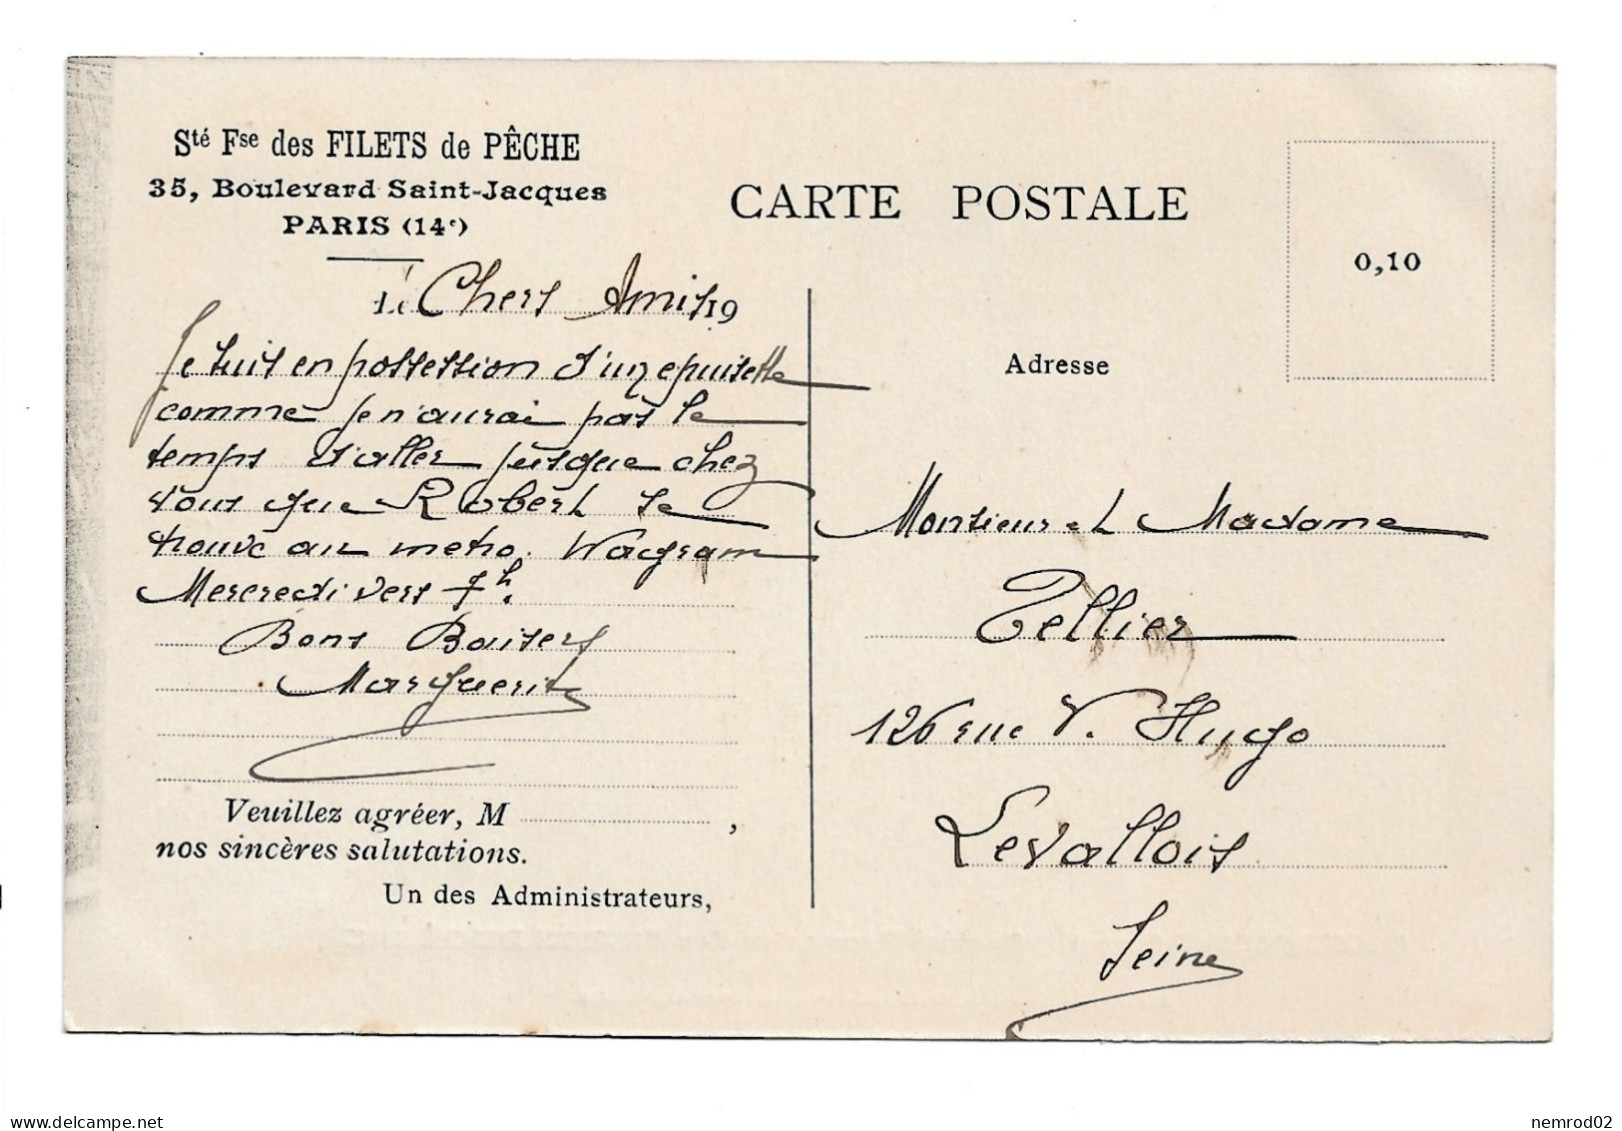 Sté Fse des FILETS de PÊCHE
35, Boulevard Saint-Jacques
PARIS (14e)
CARTE POSTALE
0,10
Le Chers Amis 19
Je suis en possession d'une epuisette
comme je n'aurai pas le
temps d'aller jusque chez
vous que Robert se
trouve au metro. Wagram
Mercredi vers 7h.
Bons Baisers
Marguerite
Veuillez agréer, M ,
nos sincères salutations.
Un des Administrateurs,
Adresse
Monsieur et Madame
Tellier
126 rue V. Hugo
Levallois
Seine
nemrod02